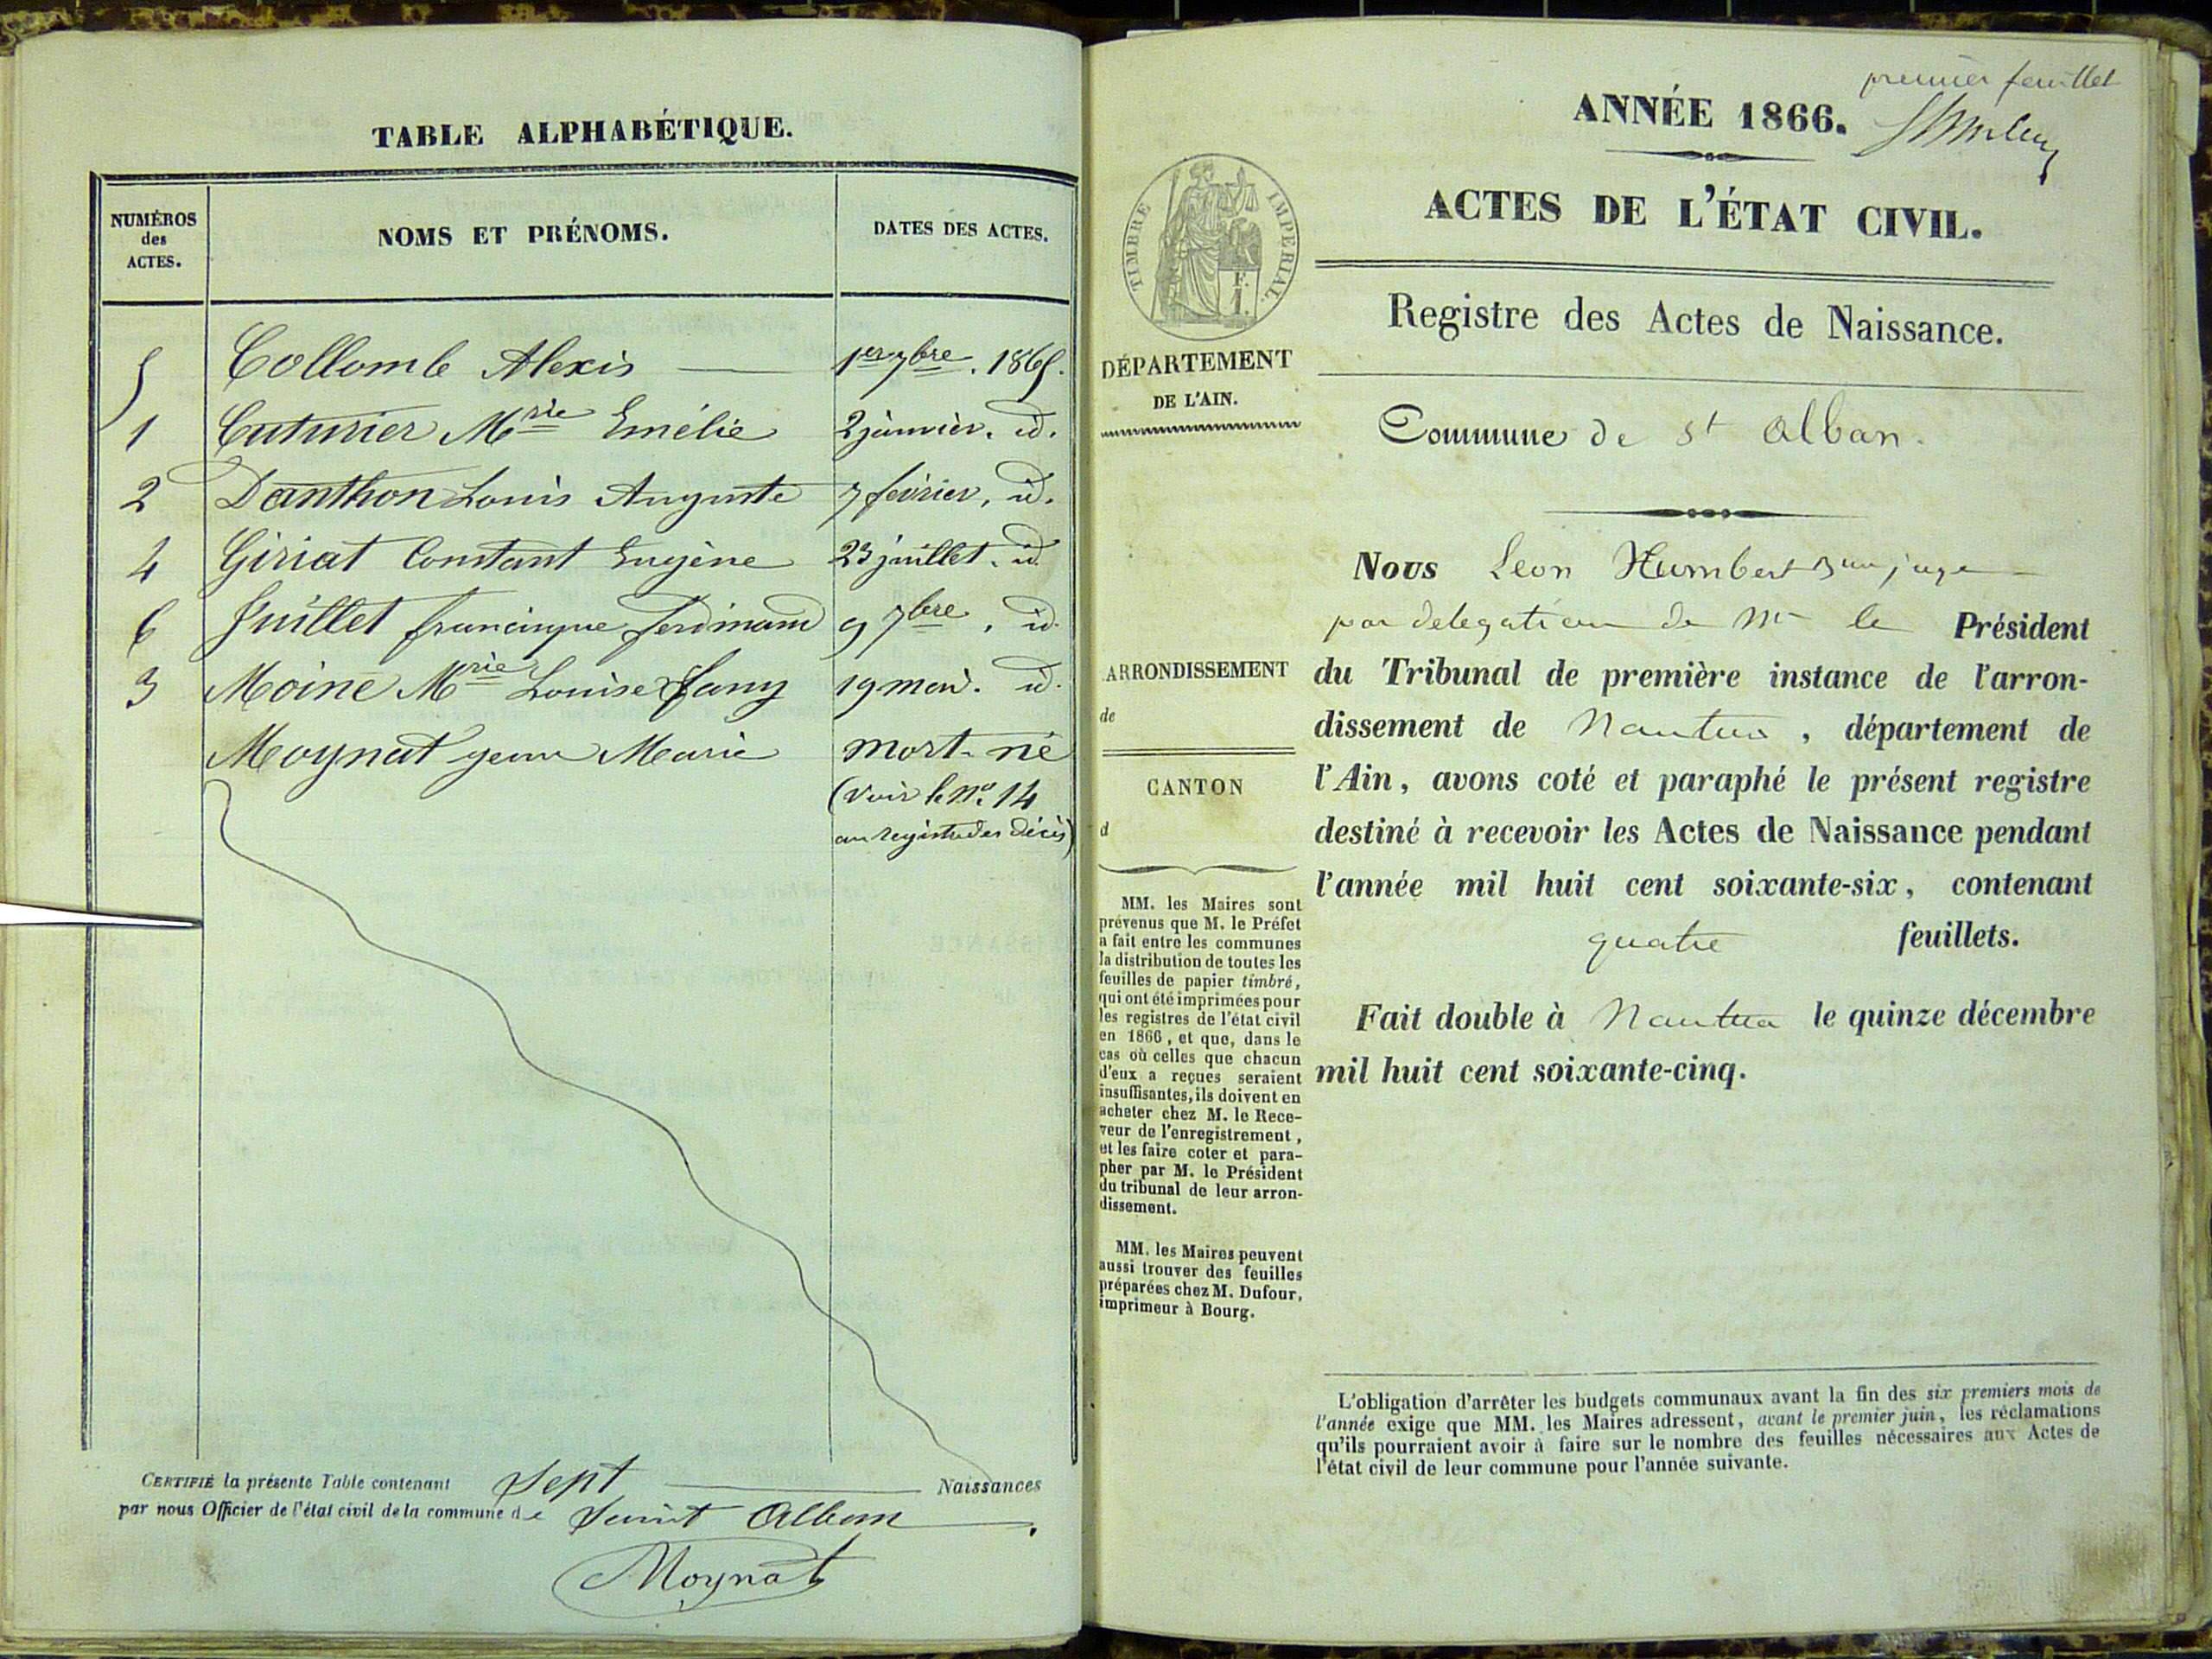 TABLE ALPHABÉTIQUE.
NUMÉROS des ACTES.
NOMS ET PRÉNOMS.
DATES DES ACTES.
5 Collomb Alexis 1er 7bre. 1865.
1 Cuturier Mrie Emélie 2 janvier. id.
2 Danthon Louis Auguste 7 février, id.
4 Giriat Constant Eugène 23 juillet. id.
6 Juillet francisque ferdinand 9 7bre, id.
3 Moine Mrie Louise fany 19 mai. id.
Moynat jean Marie mort-né
(voir le No. 14
au registre des décès)
CERTIFIÉ la présente Table contenant Sept Naissances
par nous Officier de l'état civil de la commune de Saint Alban.
Moynat
premier feuillet
ANNÉE 1866.
ACTES DE L'ÉTAT CIVIL.
Registre des Actes de Naissance.
Commune de St Alban.
Nous Leon Humbert juge
par delegation de Mr le Président
du Tribunal de première instance de l'arron-
dissement de Nantua, département de
l'Ain, avons coté et paraphé le présent registre
destiné à recevoir les Actes de Naissance pendant
l'année mil huit cent soixante-six, contenant
quatre feuillets.
Fait double à Nantua le quinze décembre
mil huit cent soixante-cinq.
TIMBRE IMPÉRIAL.
1 F.
DÉPARTEMENT
DE L'AIN.
ARRONDISSEMENT
de
CANTON
d
MM. les Maires sont
prévenus que M. le Préfet
a fait entre les communes
la distribution de toutes les
feuilles de papier timbré,
qui ont été imprimées pour
les registres de l'état civil
en 1866, et que, dans le
cas où celles que chacun
d'eux a reçues seraient
insuffisantes, ils doivent en
acheter chez M. le Rece-
veur de l'enregistrement,
et les faire coter et para-
pher par M. le Président
du tribunal de leur arron-
dissement.
MM. les Maires peuvent
aussi trouver des feuilles
préparées chez M. Dufour,
imprimeur à Bourg.
L'obligation d'arrêter les budgets communaux avant la fin des six premiers mois de
l'année exige que MM. les Maires adressent, avant le premier juin, les réclamations
qu'ils pourraient avoir à faire sur le nombre des feuilles nécessaires aux Actes de
l'état civil de leur commune pour l'année suivante.